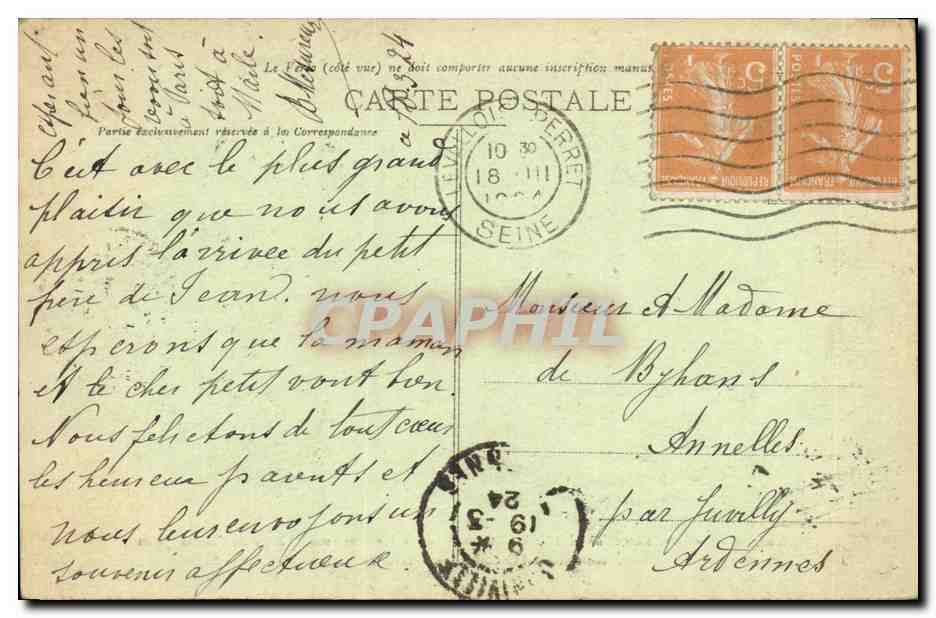 espérant
bien un
jour les
voir
Paris
tout à
Marle.
le 18 3 24
Le Verso (côté vue) ne doit comporter aucune inscription manus
CARTE POSTALE
Partie exclusivement réservée à la Correspondance
C'est avec le plus grand
plaisir que nous avons
appris l'arrivée du petit
père de Jean. nous
espérons que la maman
et le cher petit vont bien.
Nous felicitons de tout cœur
les heureux parents et
nous leur envoyons un
souvenir affectueux.
LEVALLOIS PERRET
10 30
18 III
1924
SEINE
5c
POSTES
REPUBLIQUE FRANÇAISE
5c
POSTES
REPUBLIQUE FRANÇAISE
Monsieur et Madame
de Byhans
Annelles
par Juvilly
Ardennes
19 - 3
24
CPAPHIL